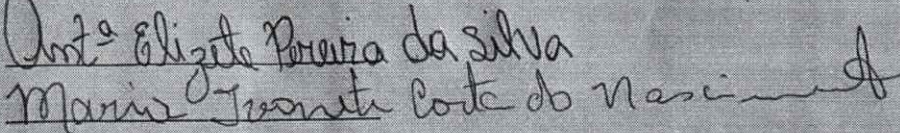 Antª Elizete Pereira da Silva
Maria Ivonete Costa do Nascimento